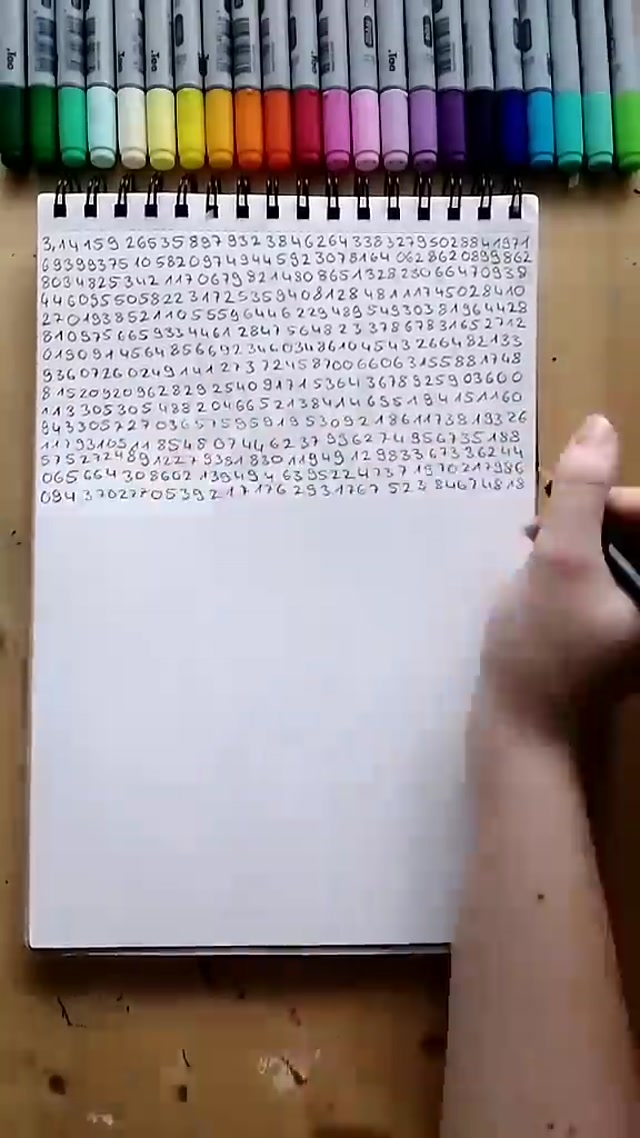 3,14159 26535897932384626433832795028841971
6939937510582097494459230781640628620899862
8034825342117067982148086513282306647093 8
4460955058223172535940812848111745028410
270193852110555964462294895493038196 4428
8109756659334461284756482337867831652712
01909145648566923460348610454326648 2133
9360726024914127372458700660631558817 48
8152092096282925409171536436789259036 00
1133053054882046652138414695194151160
94330572703657595919530921861173819326
11793105118548074462379962749567351 88
57527248912279381830119491298336733624 4
0656643086021394946395224737190702179 86
09437027705392171762931767523846748 18